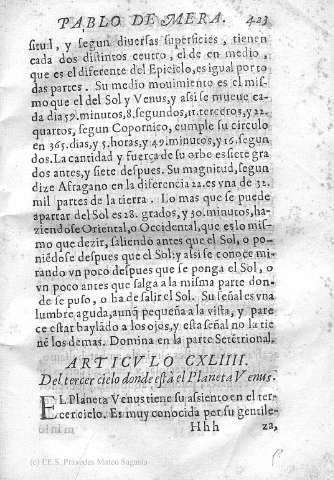 PABLO DE MERA. 423
situd, y segun diuersas superficies, tienen
cada dos distintos ceutro, el de en medio,
que es el diferente del Epiciclo, es igual por to
das partes. Su medio mouimiento es el mis-
mo que el del Sol y Venus, y assi se mueue ca-
da dia 59. minutos, 8. segundos, 11. terceros, y 22.
quartos, segun Copornico, cumple su circulo
en 365. dias, y 5. horas, y 49. minutos, y 16. segun
dos. La cantidad y fuerça de su orbe es siete gra
dos antes, y siete despues. Su magnitud, segun
dize Afragano en la diferencia 22. es vna de 32.
mil partes de la tierra. Lo mas que se puede
apartar del Sol es 28. grados, y 30. minutos, ha-
ziendose Oriental, o Occidental, que es lo mis-
mo que dezir, saliendo antes que el Sol, o po-
niẽdose despues que el Sol: y assi se conoce mi-
rando vn poco despues que se ponga el Sol, o
vn poco antes que salga a la misma parte don-
de se puso, o ha de salir el Sol. Su señal es vna
lumbre aguda, aunq̃ pequeña a la vista, y pare-
ce estar baylãdo a los ojos, y esta señal no la tie
nẽ los demas. Domina en la parte Setẽtrional.
ARTICVLO CXLIIII.
Del tercer cielo donde està el Planeta Venus.
EL Planeta Venus tiene su assiento en el ter-
cer cielo. Es muy conocida per su gentile-
Hhh za,
(c) I.E.S. Práxedes Mateo Sagasta